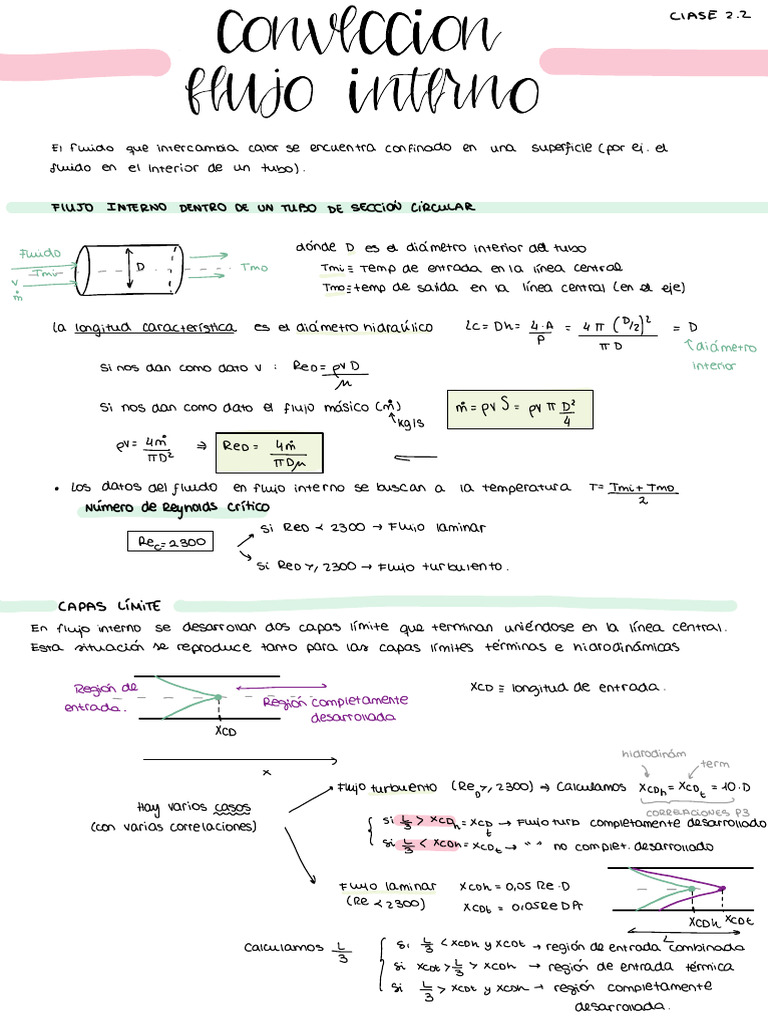 CLASE 2.2
Convección
flujo interno
El fluido que intercambia calor se encuentra confinado en una superficie (por ej. el
fluido en el interior de un tubo).
FLUJO INTERNO DENTRO DE UN TUBO DE SECCIÓN CIRCULAR
Fluido
Tmi
V
ṁ
D
Tmo
dónde D es el diámetro interior del tubo
Tmi ≡ Temp de entrada en la línea central
Tmo ≡ temp de salida en la línea central (en el eje)
La longitud característica es el diámetro hidraúlico Lc = Dh = 4·A/P = 4π(D/2)²/πD = D
↑ diámetro
interior
Si nos dan como dato v : ReD = ρvD/μ
Si nos dan como dato el flujo másico (ṁ) ṁ = ρv S = ρv π D²/4
kg/s
ρv = 4ṁ/πD² ⇒ ReD = 4ṁ/πDμ
• Los datos del fluido en flujo interno se buscan a la temperatura T = Tmi + Tmo/2
Número de Reynolds crítico
Si ReD < 2300 → Flujo laminar
Rec = 2300
Si ReD ≥ 2300 → Flujo turbulento.
CAPAS LÍMITE
En flujo interno se desarrollan dos capas límite que terminan uniéndose en la línea central.
Esta situación se reproduce tanto para las capas límites términas e hidrodinámicas
Región de
entrada.
Región completamente
desarrollada
XCD
XCD ≡ longitud de entrada.
x
hidrodinám
term
Flujo turbulento (ReD ≥ 2300) → Calculamos XCDh = XCDt = 10·D
CORRELACIONES P3
Hay varios casos
(con varias correlaciones)
Si L/3 > XCDh = XCDt → Flujo turb completamente desarrollado
Si L/3 < XCDh = XCDt → " " no complet. desarrollado
Flujo laminar XCDh = 0,05 Re·D
(Re < 2300) XCDt = 0,05 Re D Pr
XCDh XCDt
L
Calculamos L/3
Si L/3 < XCDh y XCDt → región de entrada combinada
Si XCDt > L/3 > XCDh → región de entrada térmica
Si L/3 > XCDt y XCDh → región completamente
desarrollada.